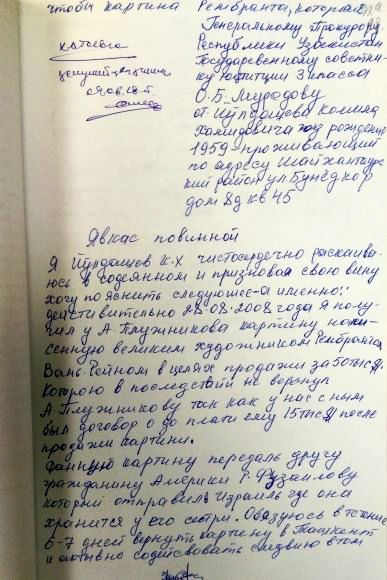 чтобы картина Рембранта, которая
Генеральному Прокурору
Республики Узбекистан
Государсвенному советни-
ку юстиции 3 класса
О.Б. Мурадову
от Йулдашева Комила
Хамидовича год рождения
1959 проживающий
по адресу Шайхантаур
ский район ул Бунёдкор
дом 8д кв 45
Явка с повинной
Я Йулдашев К.Х чистосердечно раскаива-
юсь в содеянном и признавая свою вину
хочу пояснить следующее-а именно:
действительно 28.08.2008 года я полу-
чил у А. Плужникова картину напи-
сенную великим художником Рембранта
Вань-Рейном в целях продажи за 50 тыс $
которою в последстаи не вернул
А. Плужникову так как у нас с ним
был договор о до плати ему 15 тыс $ после
продажи картини.
Данную картину передаль другу
гражданину Америки Р. Фузаилову
который отправиль Израиль где она
хранится у его сестри. Обязуюсь в течение
6-7 дней вернуть картину в Ташкент
и активно содействовать следвию в том